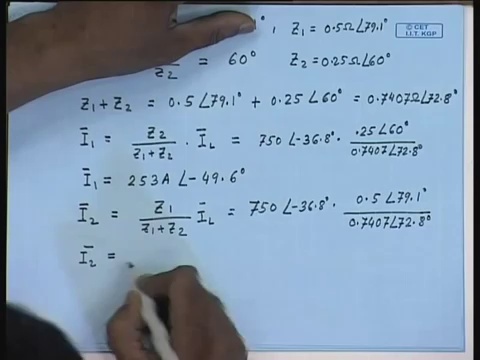 ° , Z₁ = 0.5Ω∠79.1°
© CET
I.I.T. KGP
Z₂ = 60° Z₂ = 0.25Ω∠60°
Z₁ + Z₂ = 0.5∠79.1° + 0.25∠60° = 0.7407Ω∠72.8°
Ī₁ = Z₂/(Z₁+Z₂) · Ī_L = 750∠-36.8° · .25∠60°/0.7407∠72.8°
Ī₁ = 253A∠-49.6°
Ī₂ = Z₁/(Z₁+Z₂) Ī_L = 750∠-36.8° · 0.5∠79.1°/0.7407∠72.8°
Ī₂ =